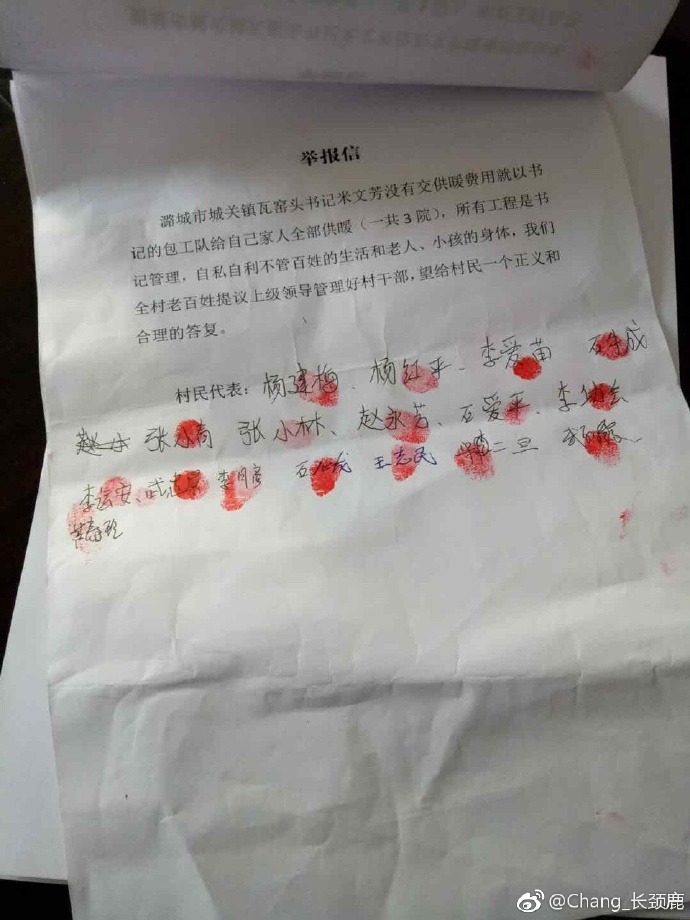 举报信
潞城市城关镇瓦窑头书记米文芳没有交供暖费用就以书
记的包工队给自己家人全部供暖（一共3院），所有工程是书
记管理，自私自利不管百姓的生活和老人、小孩的身体，我们
全村老百姓提议上级领导管理好村干部，望给村民一个正义和
合理的答复。
村民代表：杨建梅、杨红平、李爱苗
张小林、赵永芳、石爱平、李
李云安、王志民 二旦
@Chang_长颈鹿